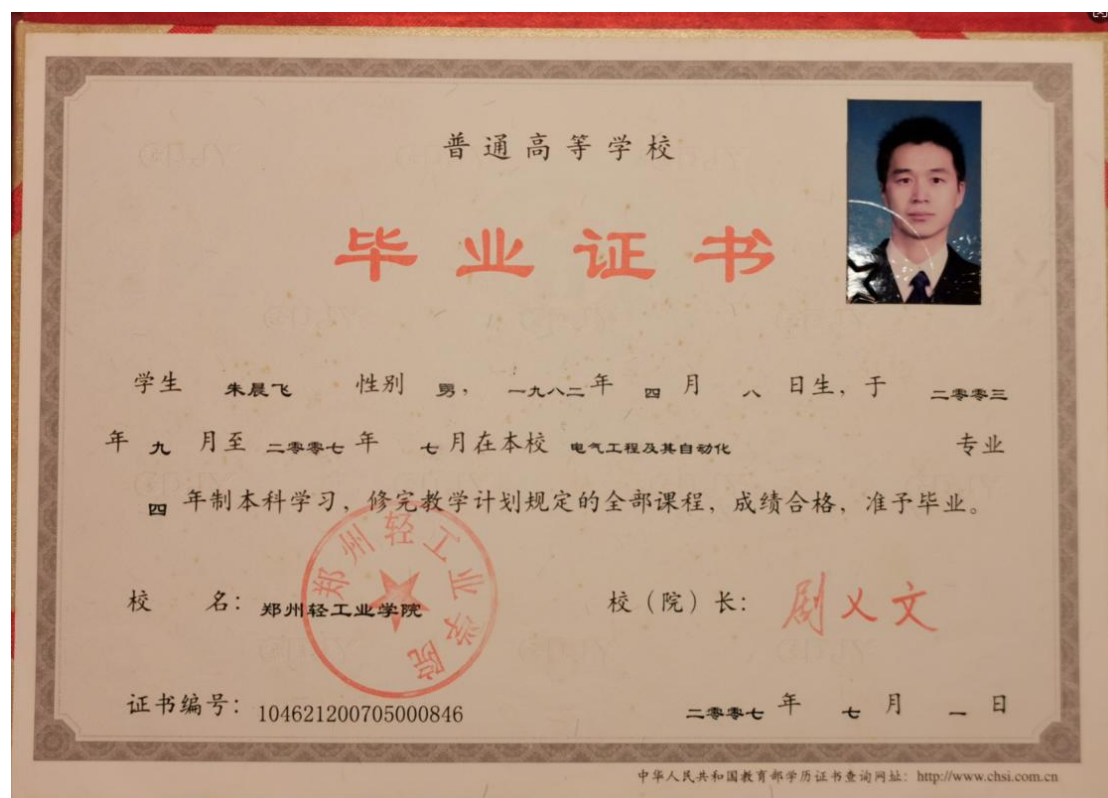 普通高等学校
毕业证书
学生 朱晨飞 性别 男，一九八二年 四 月 八 日生，于 二零零三
年 九 月至 二零零七 年 七 月在本校 电气工程及其自动化 专业
四 年制本科学习，修完教学计划规定的全部课程，成绩合格，准予毕业。
郑州轻工业学院
校 名：郑州轻工业学院 校（院）长：剧义文
证书编号：104621200705000846 二零零七 年 七 月 一 日
中华人民共和国教育部学历证书查询网址：http://www.chsi.com.cn